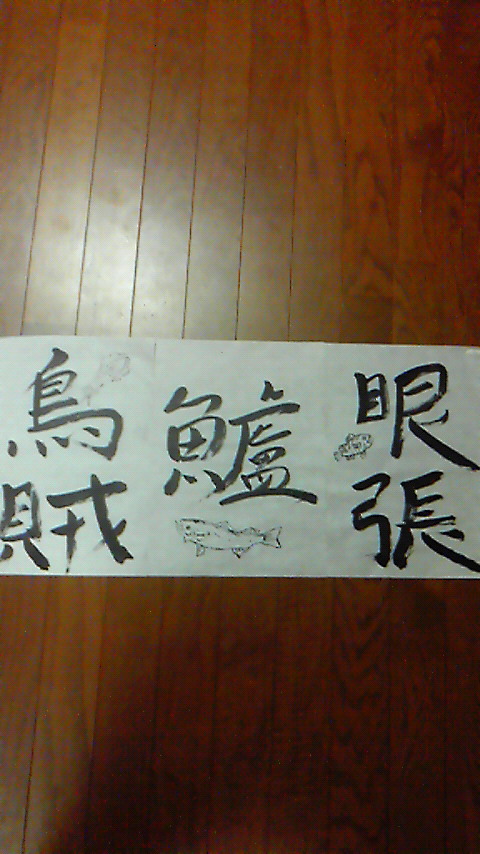 眼張
鱸
烏賊